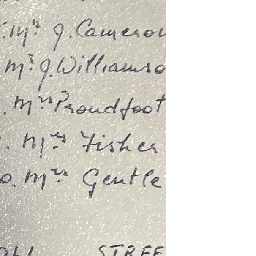 Mrs J. Cameron
Mrs J. Williamso
. Mrs Proudfoot
. Mrs Fisher
o. Mrs Gentle
STREE